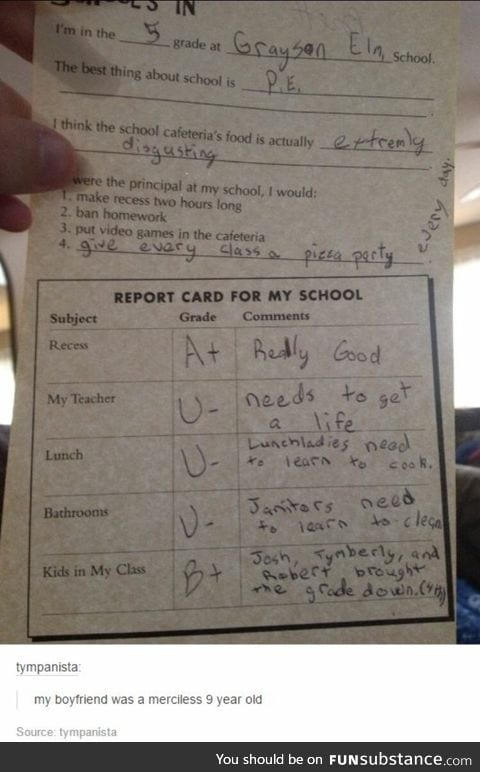 IN
I'm in the 5 grade at Grayson Elm, School.
The best thing about school is P.E.
I think the school cafeteria's food is actually extremly
disgusting
were the principal at my school, I would:
1. make recess two hours long
2. ban homework
3. put video games in the cafeteria
4. give every class a pizza party every day.
REPORT CARD FOR MY SCHOOL
Subject Grade Comments
Recess A+ Really Good
My Teacher U- needs to get
a life
Lunch U- Lunchladies need
to learn to cook.
Bathrooms U- Janitors need
to learn to clean
Kids in My Class B+ Josh, Tymberly, and
Robert brought
the grade down.
tympanista:
my boyfriend was a merciless 9 year old
Source: tympanista
You should be on FUNsubstance.com